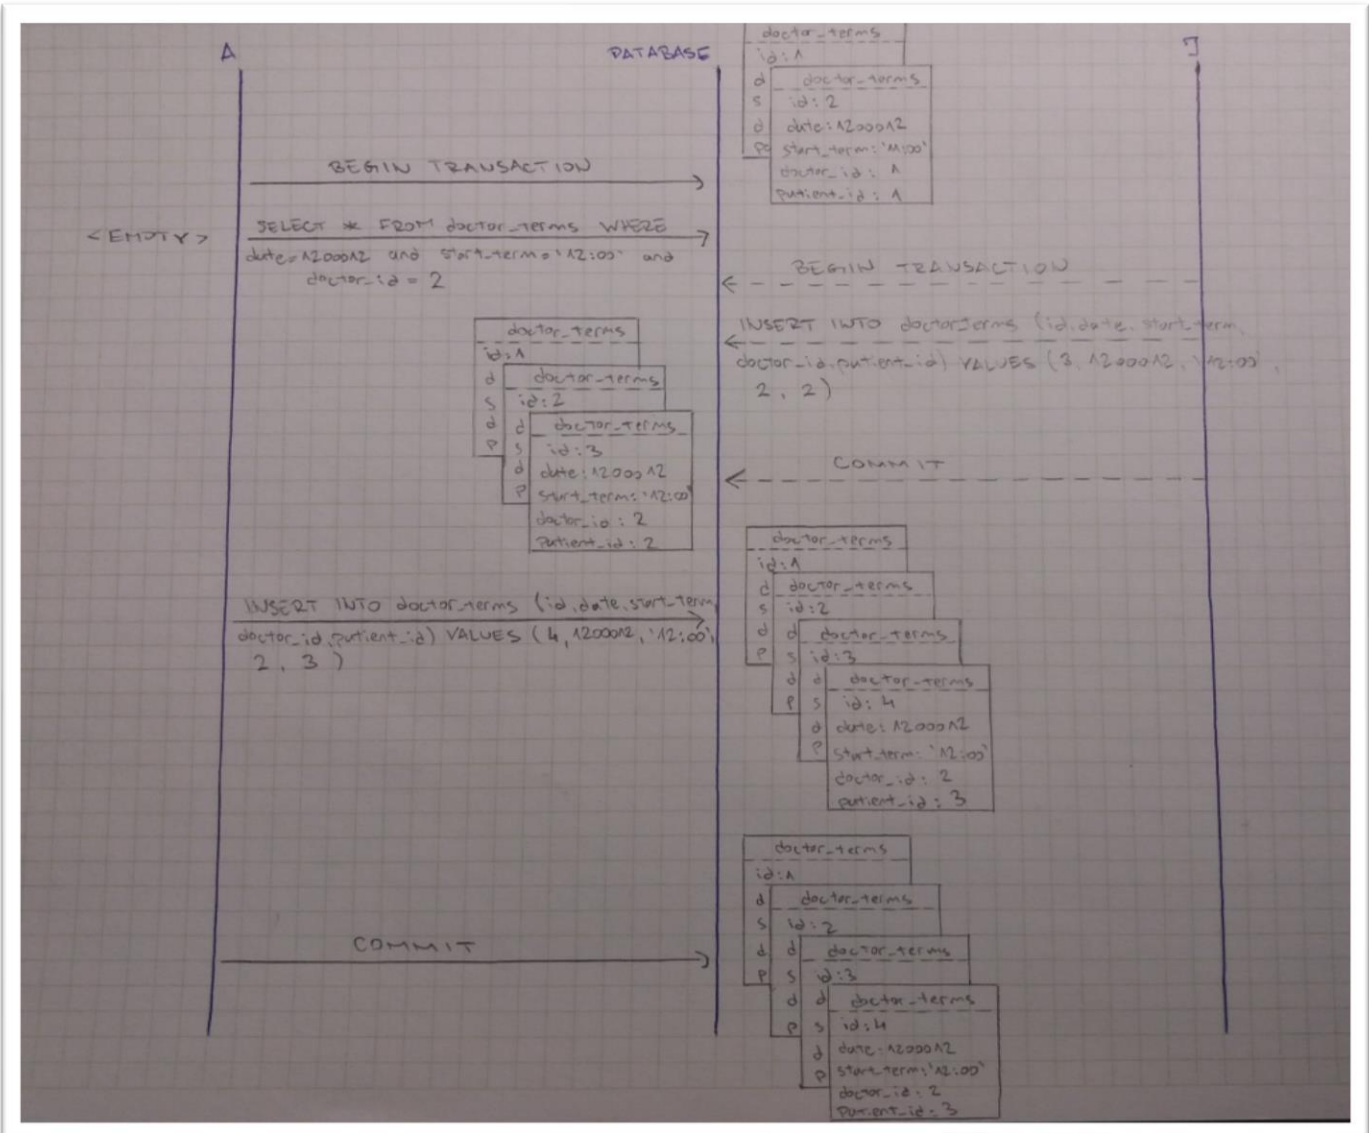 A
DATABASE
J
doctor_terms
id:1
d
doctor_terms
s
id:2
d
date:1200012
Pd
start_term:'11:00'
doctor_id: 1
patient_id: 1
BEGIN TRANSACTION
<EMPTY>
SELECT * FROM doctor_terms WHERE
date=1200012 and start_term='12:00' and
doctor_id = 2
BEGIN TRANSACTION
INSERT INTO doctor_terms (id,date,start_term,
doctor_id,patient_id) VALUES (3,1200012,'12:00',
2, 2)
doctor_terms
id:1
d
doctor_terms
s
id:2
d
d
doctor_terms
P
s
id:3
d
date:1200012
P
start_term:'12:00'
doctor_id: 2
patient_id: 2
COMMIT
INSERT INTO doctor_terms (id,date,start_term,
doctor_id,patient_id) VALUES (4,1200012,'12:00',
2, 3)
doctor_terms
id:1
d
doctor_terms
s
id:2
d
d
doctor_terms
P
s
id:3
d
d
doctor_terms
P
s
id:4
d
date:1200012
P
start_term:'12:00'
doctor_id: 2
patient_id: 3
COMMIT
doctor_terms
id:1
d
doctor_terms
s
id:2
d
d
doctor_terms
P
s
id:3
d
d
doctor_terms
P
s
id:4
d
date:1200012
P
start_term:'12:00'
doctor_id: 2
patient_id: 3